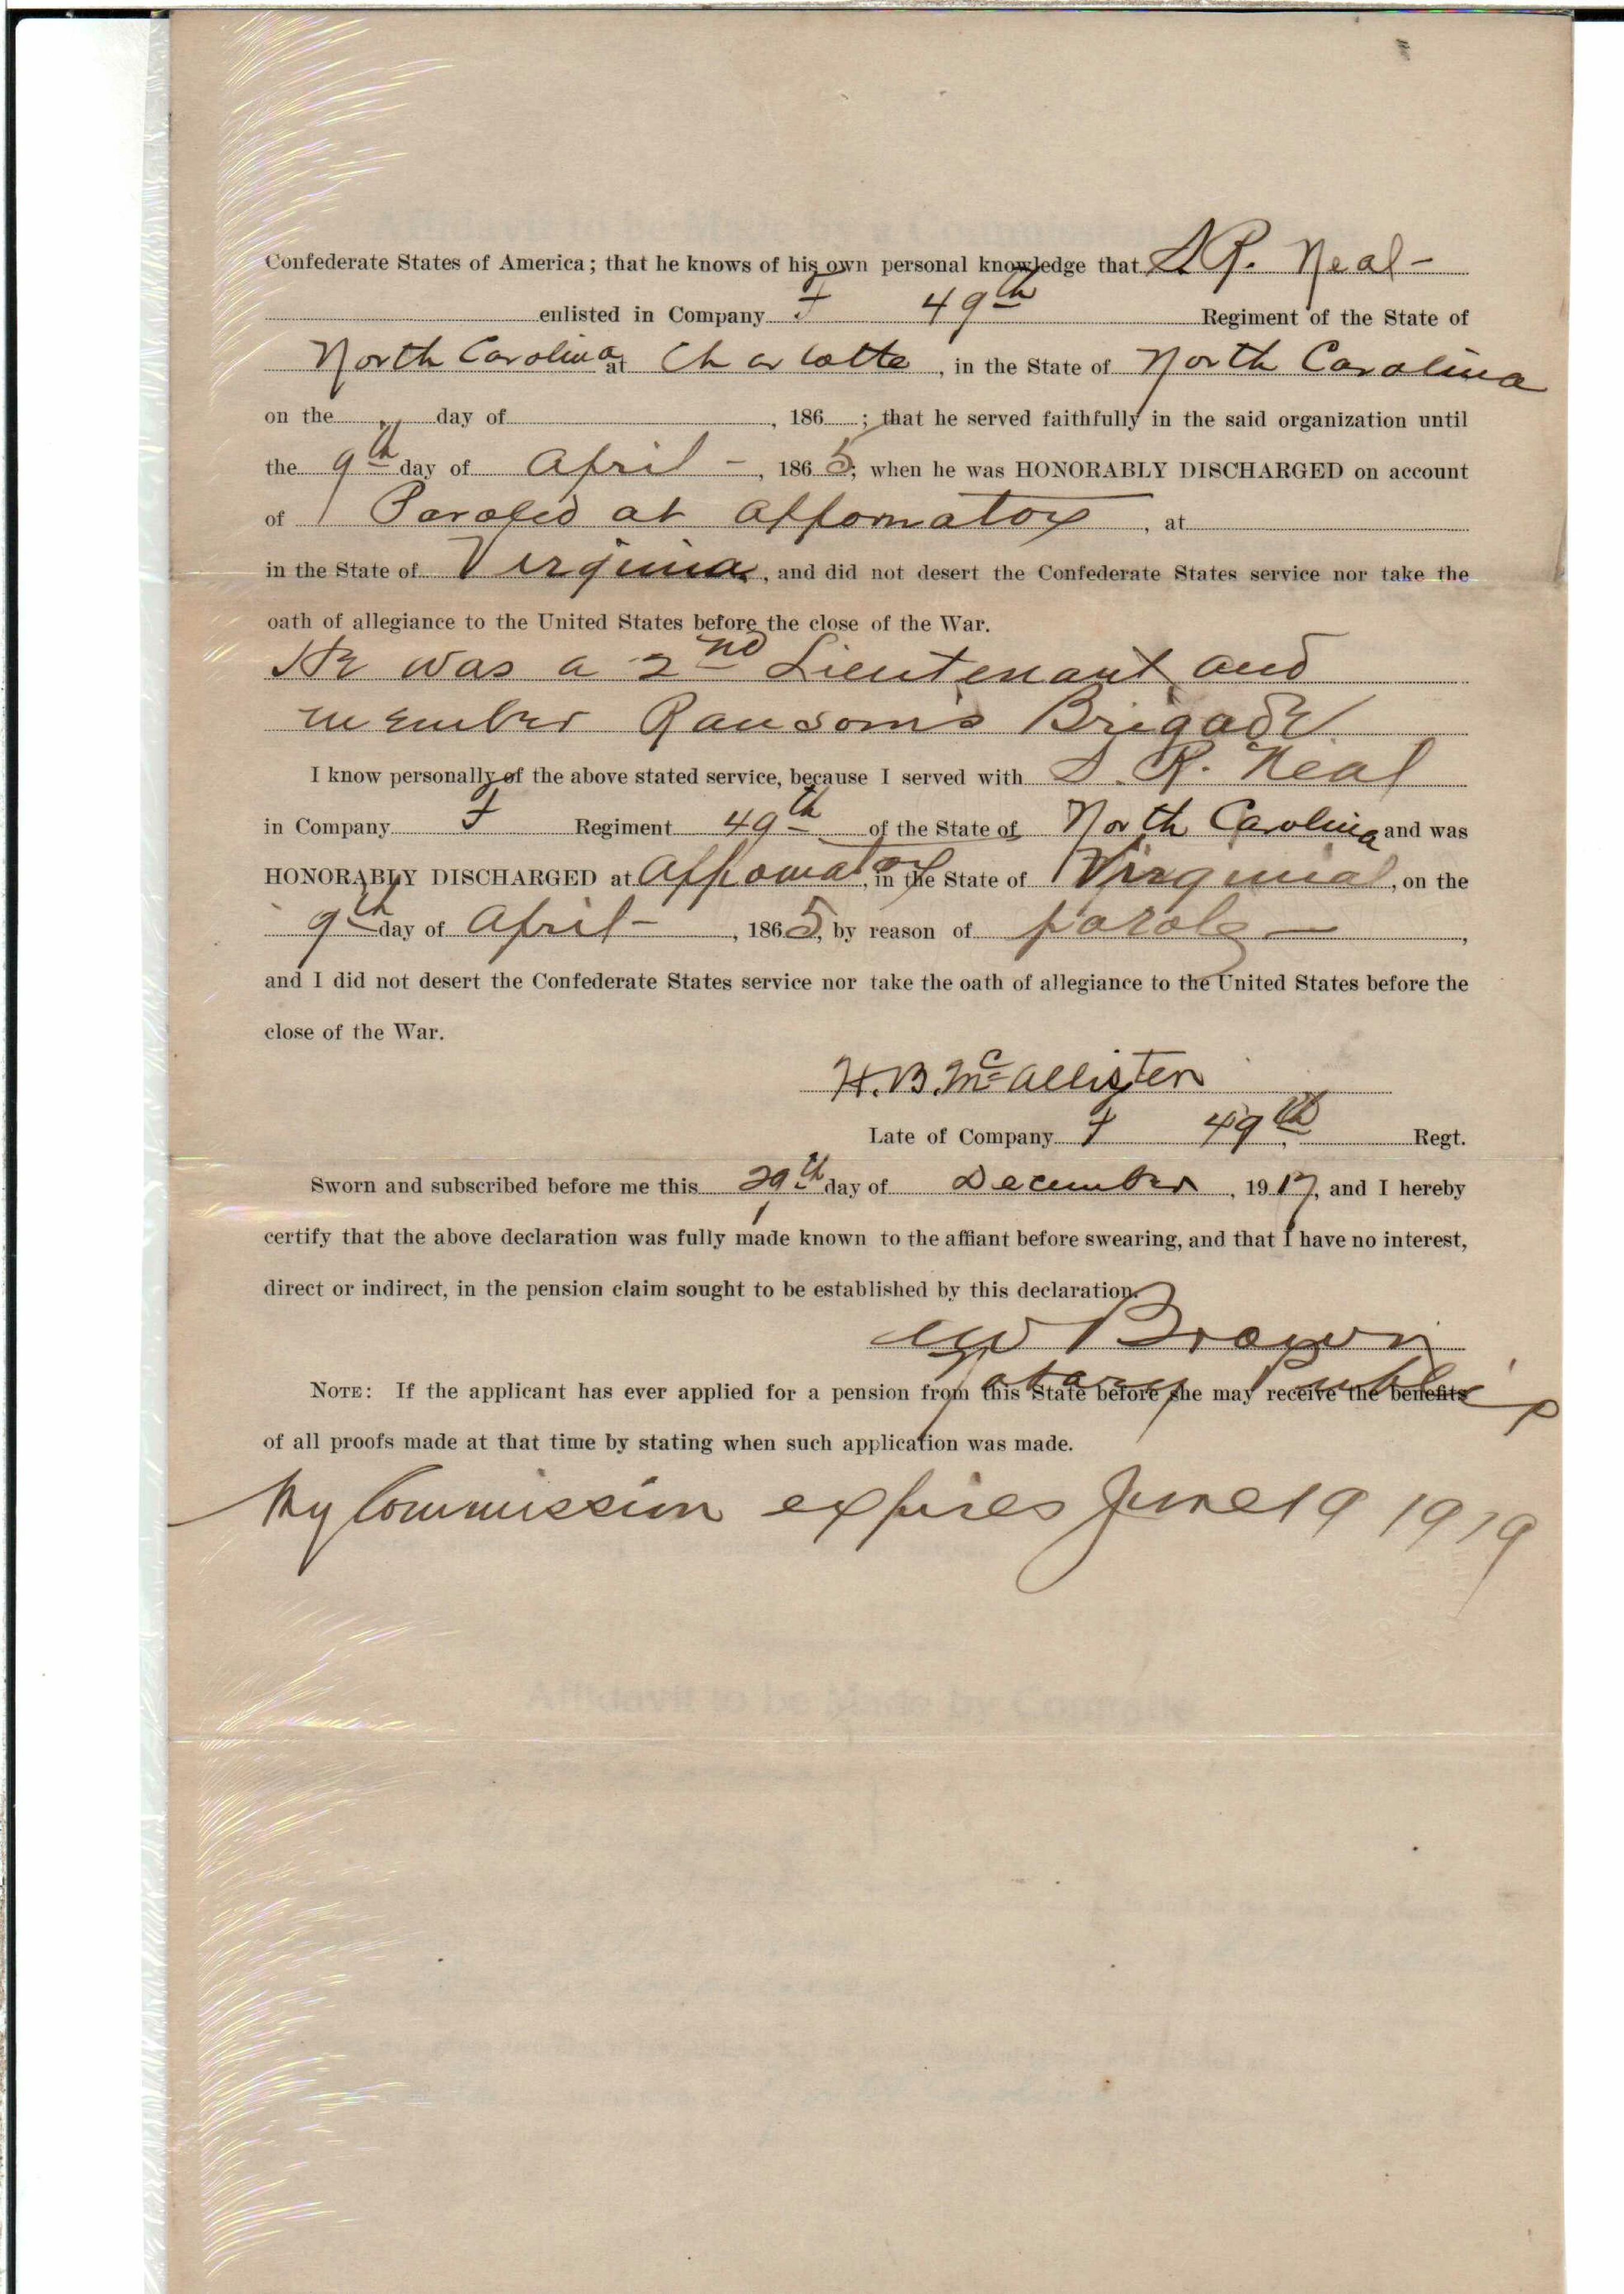 Confederate States of America; that he knows of his own personal knowledge that S. R. Neal -
enlisted in Company F 49th Regiment of the State of
North Carolina at Charlotte, in the State of North Carolina
on the day of , 186 ; that he served faithfully in the said organization until
the 9th day of April -, 1865; when he was HONORABLY DISCHARGED on account
of Paroled at Appomatox, at
in the State of Virginia, and did not desert the Confederate States service nor take the
oath of allegiance to the United States before the close of the War.
He was a 2nd Lieutenant and
member Ransom's Brigade
I know personally of the above stated service, because I served with S. R. Neal
in Company F Regiment 49th of the State of North Carolina and was
HONORABLY DISCHARGED at Appomatox, in the State of Virginia, on the
9th day of April -, 1865, by reason of parole -,
and I did not desert the Confederate States service nor take the oath of allegiance to the United States before the
close of the War.
H. B. McAllister
Late of Company F 49th Regt.
Sworn and subscribed before me this 29th day of December, 1917, and I hereby
certify that the above declaration was fully made known to the affiant before swearing, and that I have no interest,
direct or indirect, in the pension claim sought to be established by this declaration.
Brown
Notary Public
NOTE: If the applicant has ever applied for a pension from this State before she may receive the benefits
of all proofs made at that time by stating when such application was made.
My Commission expires June 19 1919
Affidavit to be Made by Comrade